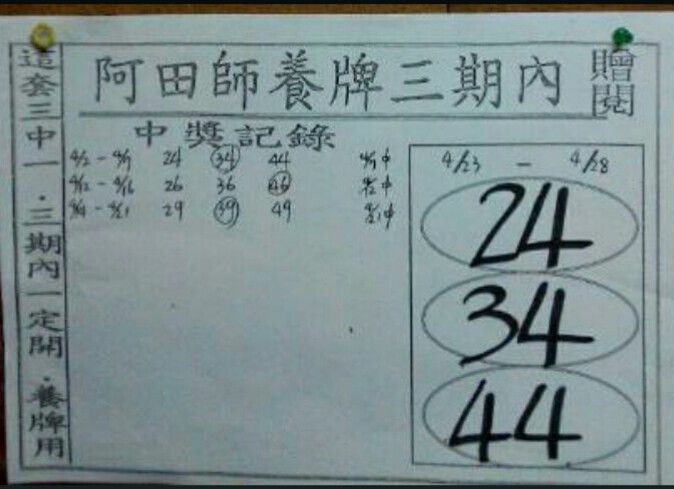 阿田師養牌三期內
贈閱
這套三中一．三期內一定開．養牌用
中獎記錄
4/2 - 4/9 24 34 44 4/9中
4/12 - 4/16 26 36 46 4/12中
29 39 49 4/21中
4/23 - 4/28
24
34
44